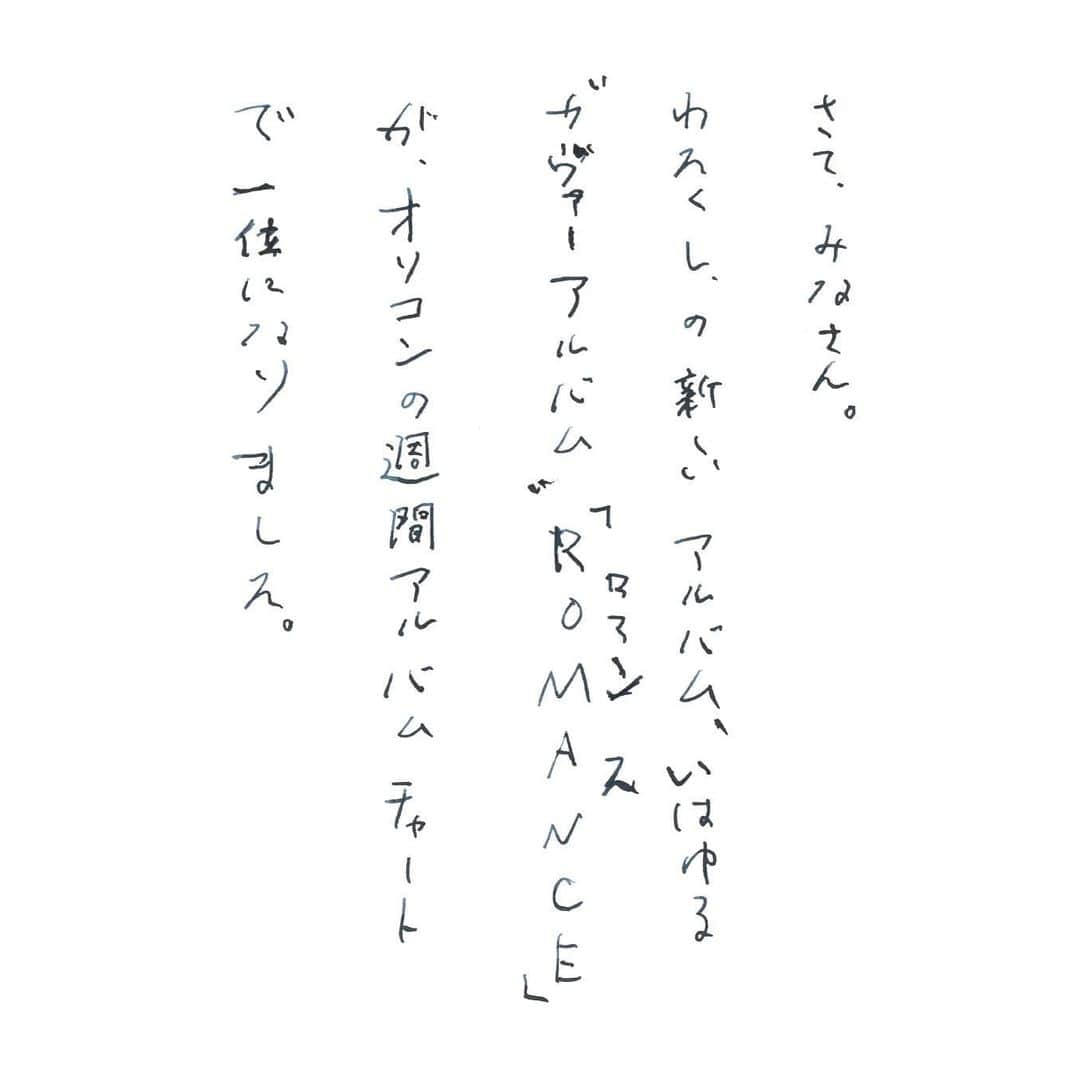 さて、みなさん。
わたくし、の新しいアルバム、いはゆる
〝カヴァーアルバム〟「ROMANCE」
ロマンス
が、オリコンの週間アルバムチャート
で一位になりました。